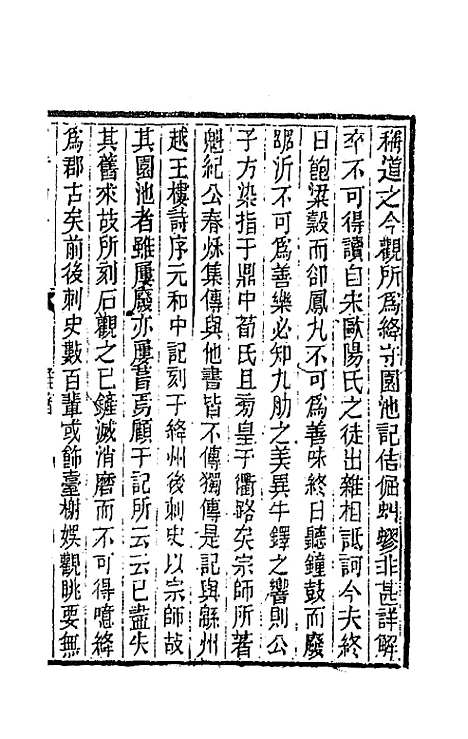 稱道之今觀所爲絳守園池記佶倔虯蟉非甚詳解
卒不可得讀自宋歐陽氏之徒出雜相詆訶今夫終
日飽粱縠而卻鳳九不可爲善味終日聽鐘鼓而廢
鄒沂不可爲善樂必知九肋之美異牛鐸之響則公
子方染指于鼎中荀氏且菊皇于衢路矣宗師所著
魁紀公春秌集傳與他書皆不傳獨傳是記與緜州
越王樓詩序元和中記刻于絳州後刺史以宗師故
其園池者雖屢廢亦屢葺焉顧于記所云云已盡失
其舊來故所刻石觀之已鏟滅消磨而不可得噫絳
爲郡古矣前後刺史數百輩或飾臺榭娛觀眺要無